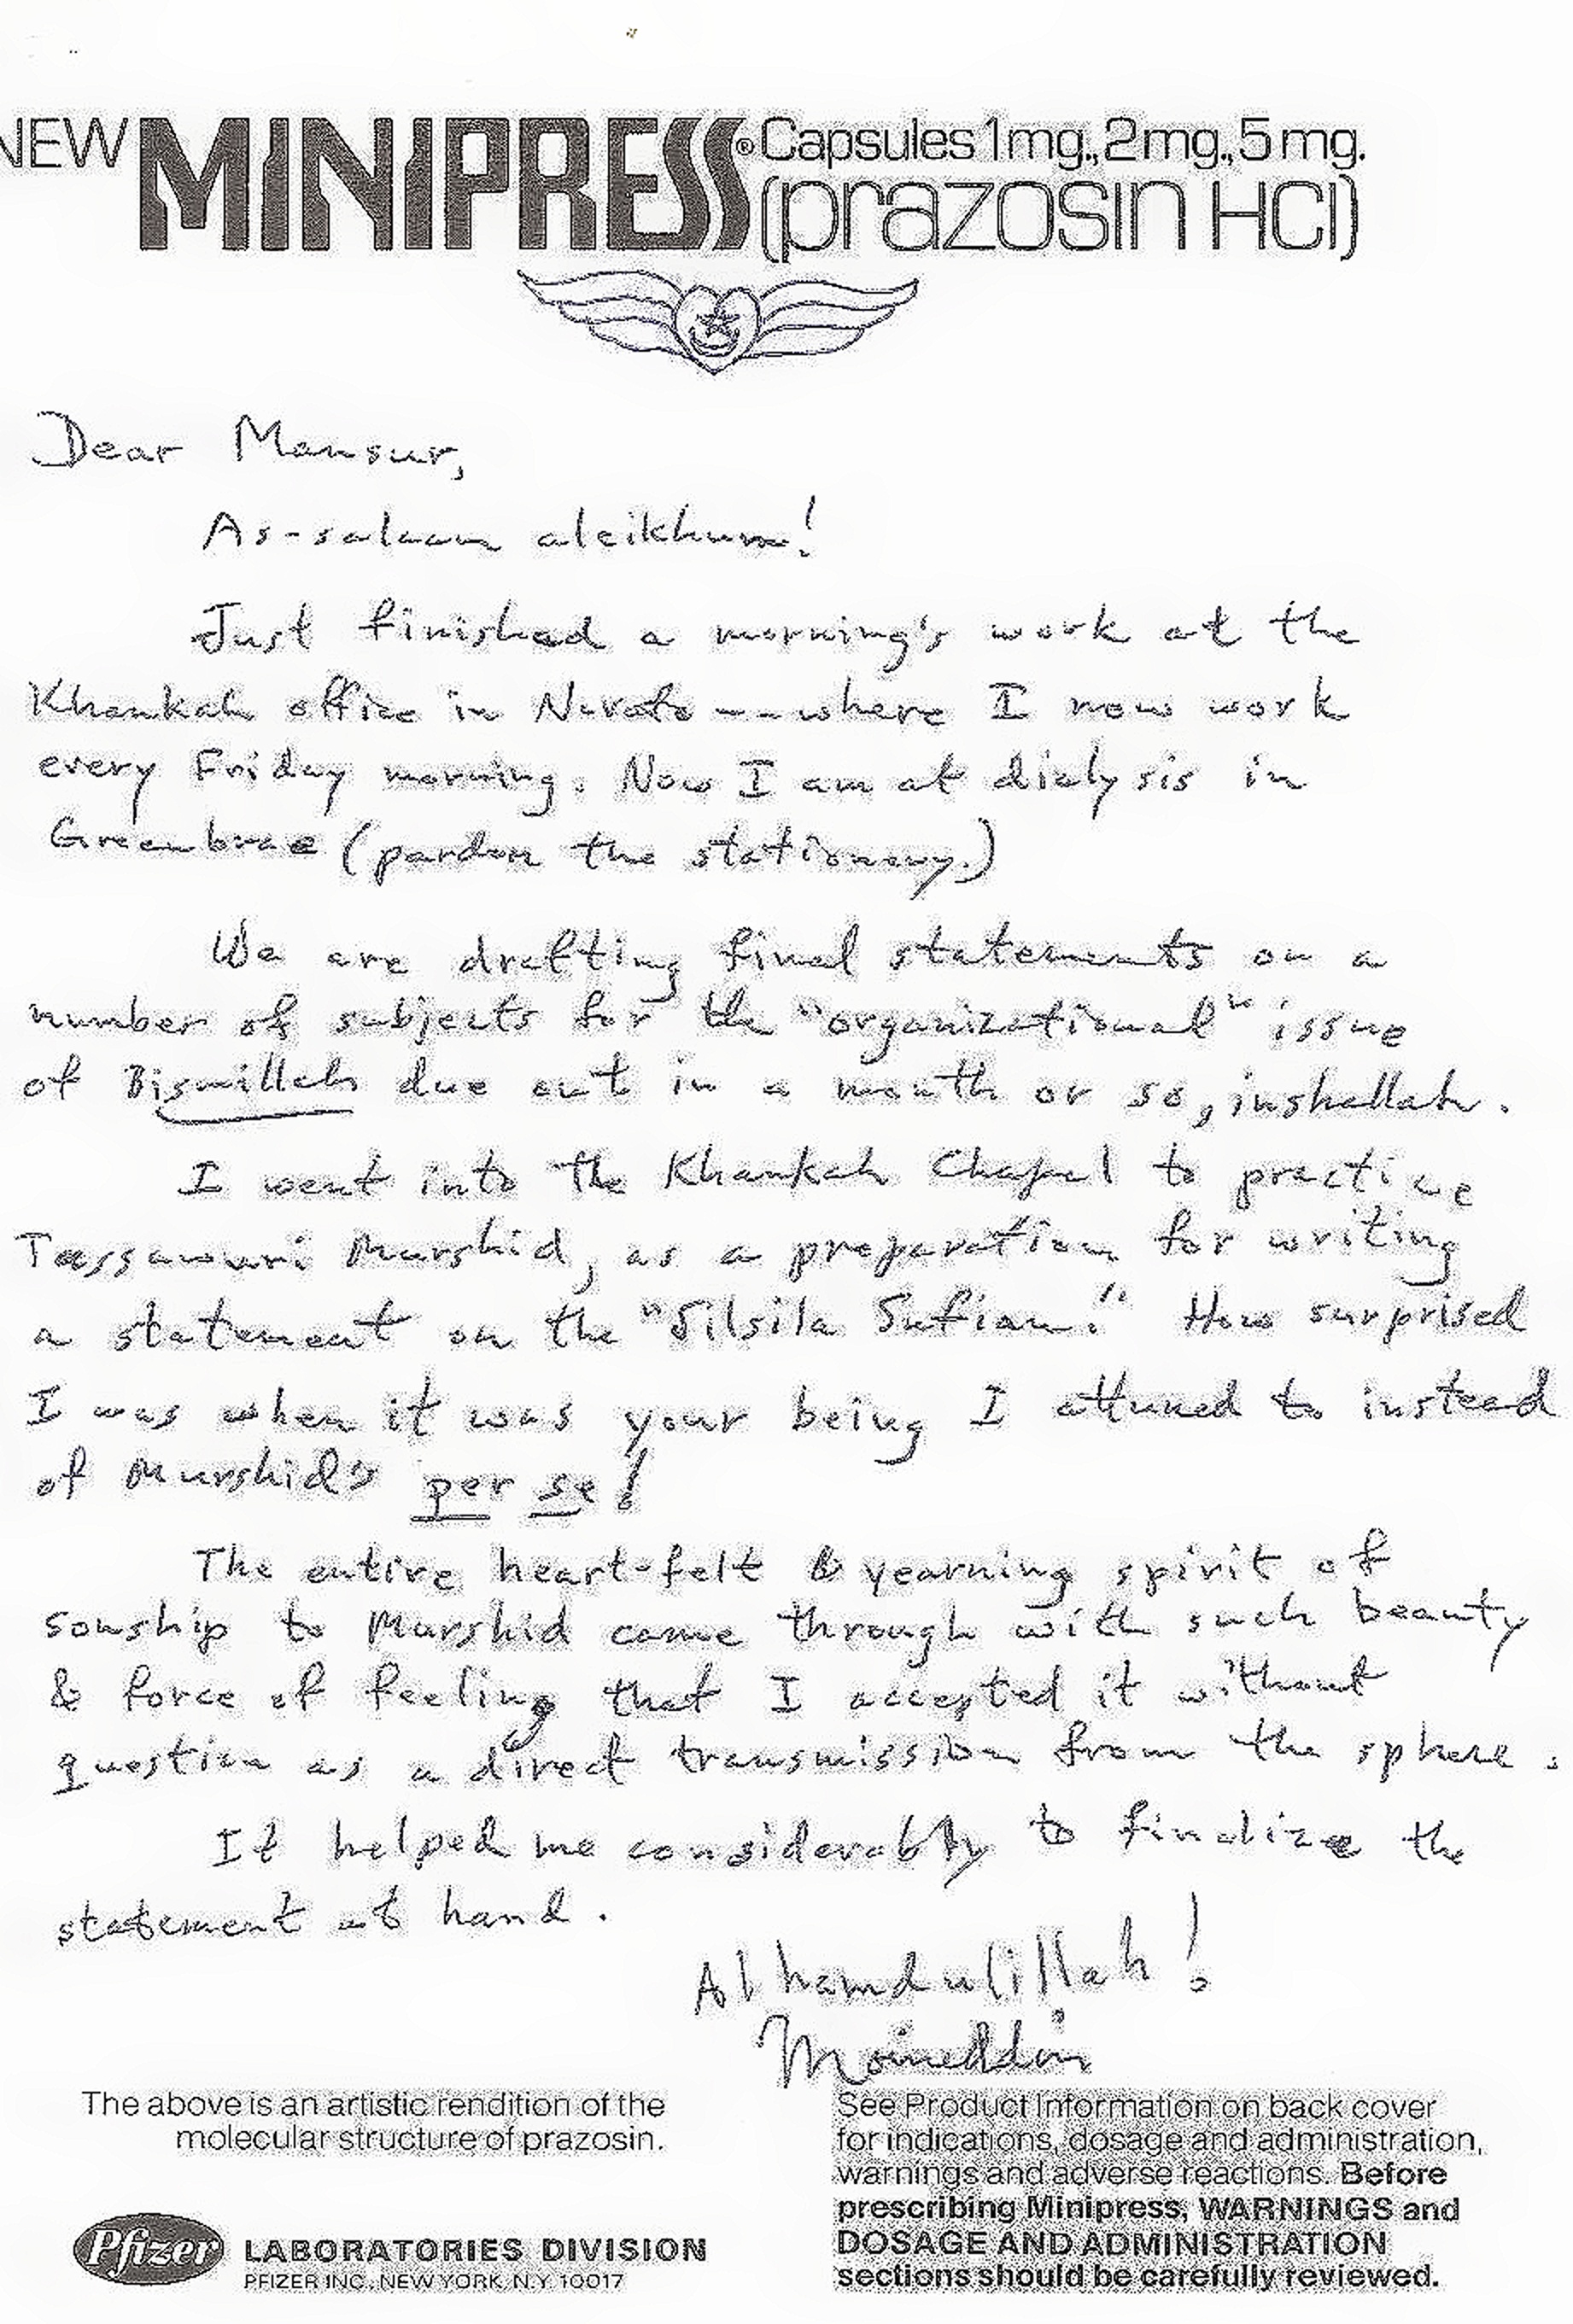 NEW MINIPRESS® Capsules 1mg., 2mg., 5mg.
(prazosin HCl)
Dear Mansur,
As-salaam aleikhum!
Just finished a morning's work at the
Khankah office in Novato -- where I now work
every Friday morning. Now I am at dialysis in
Greenbrae (pardon the stationary.)
We are drafting final statements on a
number of subjects for the "organizational" issue
of Bismillah due out in a month or so, inshallah.
I went into the Khankah Chapel to practice
Tassawuri Murshid, as a preparation for writing
a statement on the "Silsila Sufian." How surprised
I was when it was your being I attuned to instead
of Murshid's per se!
The entire heart-felt & yearning spirit of
sonship to Murshid came through with such beauty
& force of feeling that I accepted it without
question as a direct transmission from the sphere.
It helped me considerably to finalize the
statement at hand.
Alhamdulillah!
Moineddin
The above is an artistic rendition of the
molecular structure of prazosin.
Pfizer LABORATORIES DIVISION
PFIZER INC., NEW YORK, N.Y. 10017
See Product Information on back cover
for indications, dosage and administration,
warnings and adverse reactions. Before
prescribing Minipress, WARNINGS and
DOSAGE AND ADMINISTRATION
sections should be carefully reviewed.